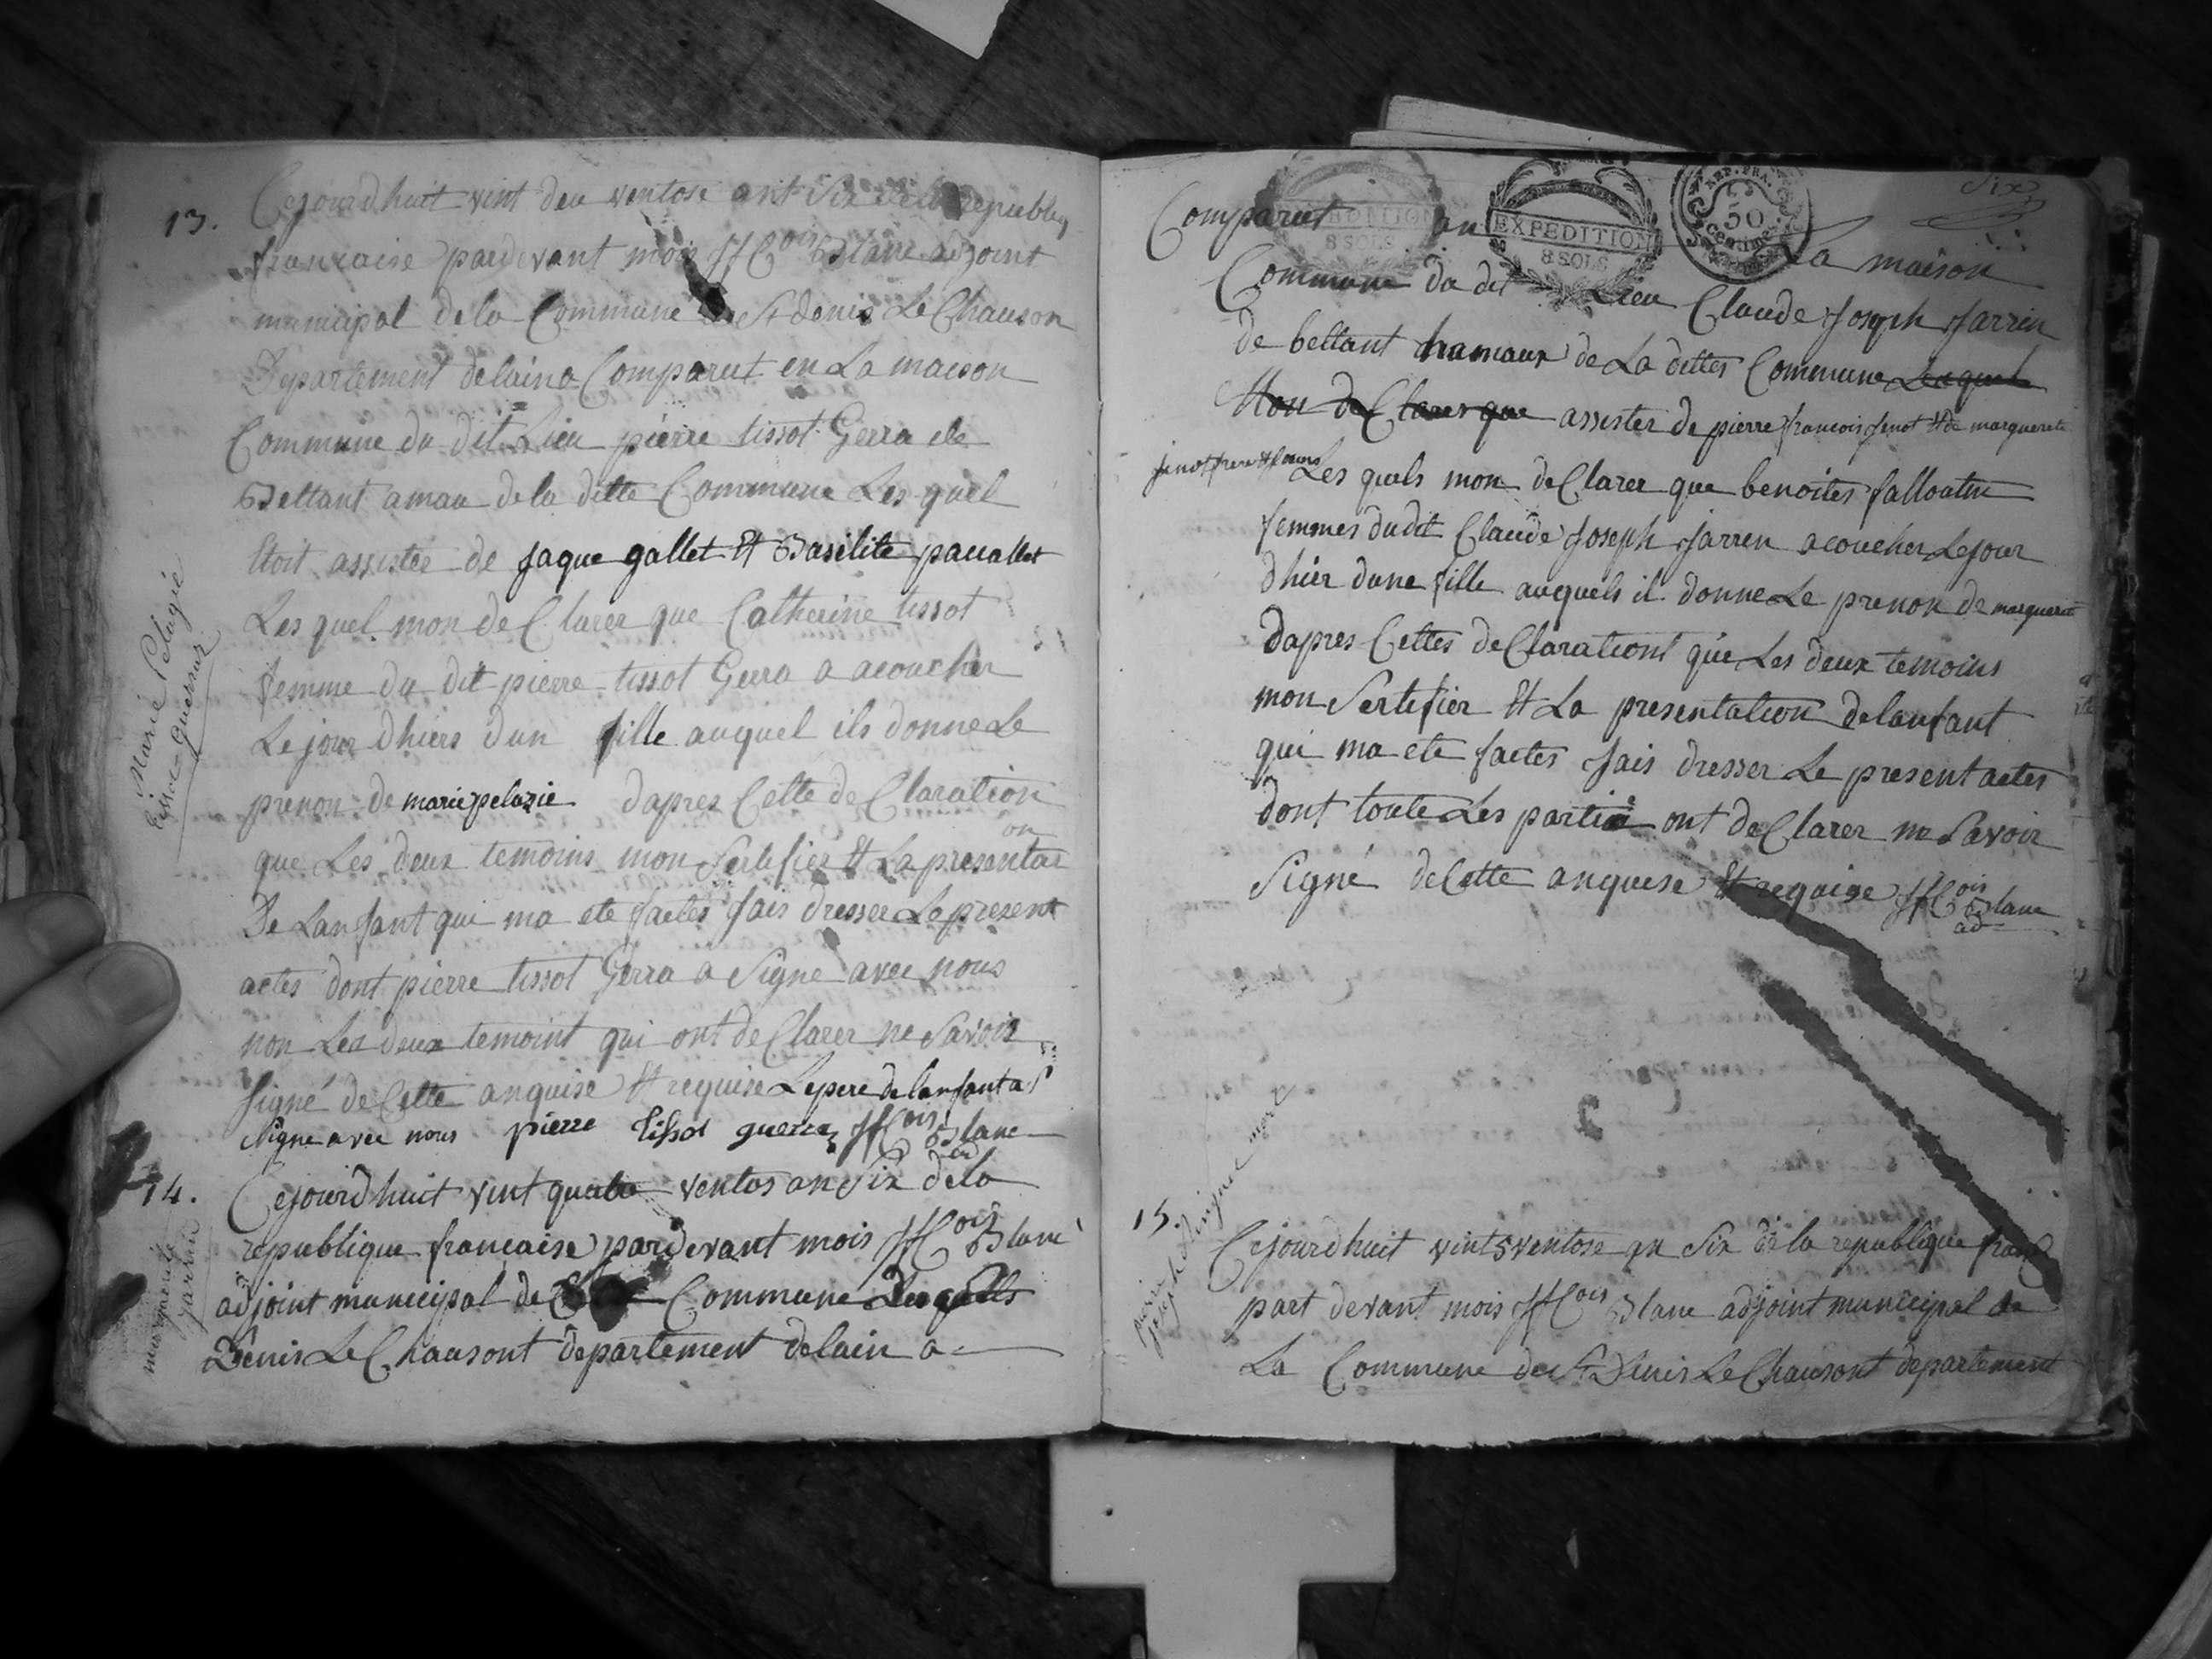 13.
Cejourdhuit vint deu ventose ant Six de la republiq
francaise pardevant mois ff Cois Blanc adjoint
municipal de la Commune de St denis Le Chauson
Departement delain a Comparut en La maison
Commune du dit Lieu pierre tissot Gerra de
Bettant amau de la ditte Commune Les quel
Etoit assistée de jaque gallet Et Basilite pauallet
Les quel mon deClarer que Catherine tissot
femme du dit pierre tissot Gerra a acoucher
Le jour dhiers dun fille auquel ils donne Le
prenon de marie pelazie dapres Cette deClaration
que Les deux temoins mon Sertefier Et La presentat
on
De Lanfant qui ma ete factes fais dresser Le present
actes dont pierre tissot Gerra a Signe avec nous
non Les deux temoint qui ont deClarer ne Savoir
Signé de Cette anquise Et requise Le pere de lanfant a S
Signe avec nous pierre Tissot guerra ff Cois Blanc
ad
Marie Pelagie
Tissot Guerraz
14.
Cejourdhuit vint quatre ventos an Six de la
republique francaise pardevant mois ff Cois Blanc
adjoint municipal de Commune Lesquels
Denis Le Chausont departement delain a
marguerite
jarrin
Six
Comparut an La maison
EXPEDITION
8 SOLS
EXPEDITION
8 SOLS
REP. FRA.
50
Centime
Commune du dit Lieu Claude Joseph Jarrin
de bettant hamaux de La dittes Commune Lequel
Mon deClarer que assister de pierre francois Jenot Et de marguerite
jenot frere Et soeurs Les quels mon deClarer que benoites falloatin
femmes du dit Claude Joseph Jarren acoucher Le jour
dhier dune fille auquels il donne Le prenon de marguerit
dapres Cettes deClarationt que Les deux temoins
mon Sertefier Et La presentation de lanfant
qui ma ete factes fais dresser Le present actes
dont toute Les partie ont deClarer ne Savoir
Signé deCette anquese Et requise ff Cois Blanc
ad
15.
Cejourdhuit vint 5 ventose an Six de la republique franc
part devant mois ff Cois Blanc adjoint municipal de
La Commune de St Denis Le Chausont departement